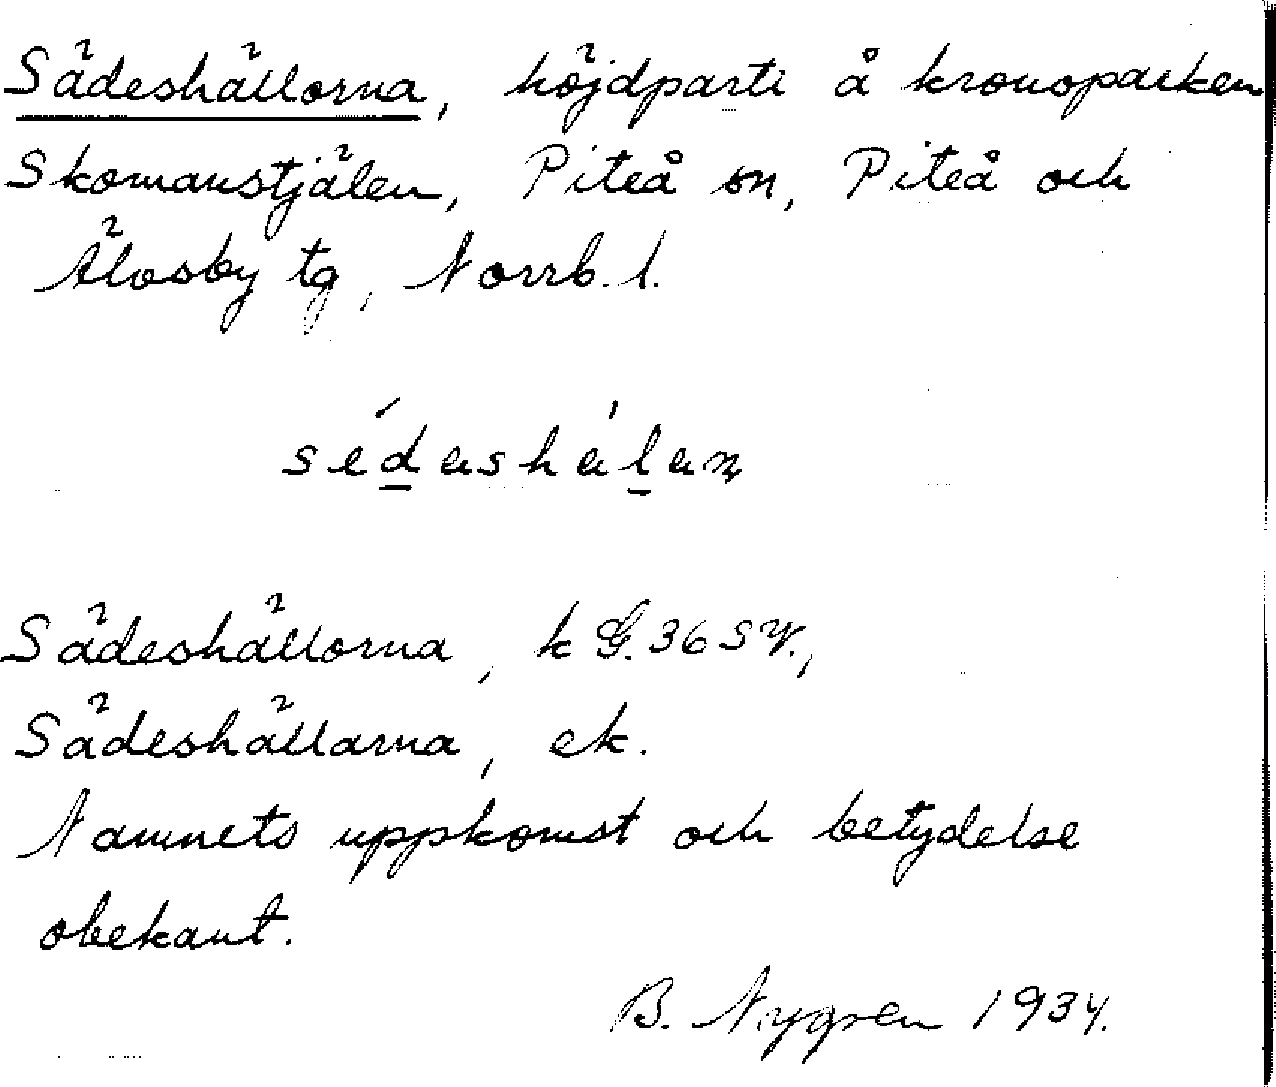 Sädeshällorna, höjdparti å kronoparken
Skomanstjälen, Piteå sn, Piteå och
Älvsby tg, Norrb. l.
Sädeshällorna, k G. 36 SV.,
Sädeshällarna, ek.
Namnets uppkomst och betydelse
obekant.
B. Nygren 1934.